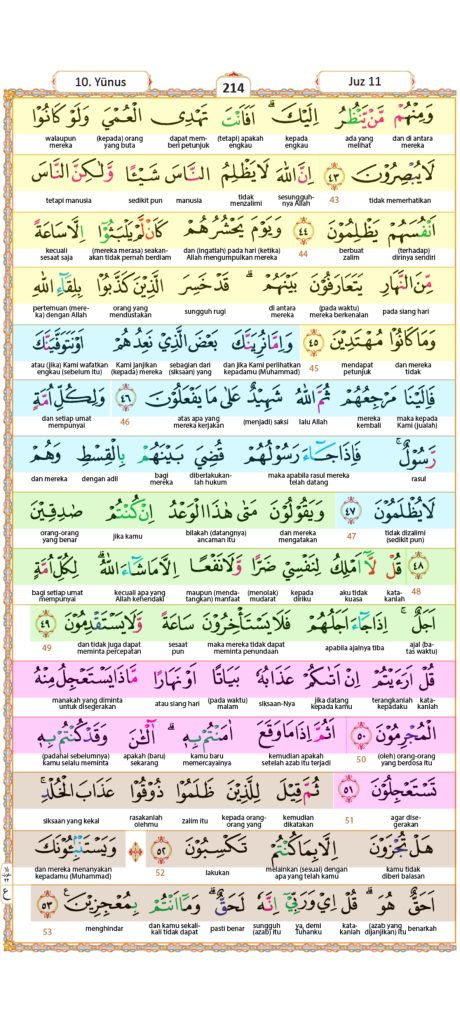 10. Yūnus
214
Juz 11
وَمِنْهُمْ مَّنْ يَّنْظُرُ اِلَيْكَ ۗ اَفَاَنْتَ تَهْدِى الْعُمْيَ وَلَوْ كَانُوْا
dan di antara mereka ada yang melihat kepada engkau (tetapi) apakah engkau dapat memberi petunjuk (kepada) orang yang buta walaupun mereka
لَا يُبْصِرُوْنَ ٤٣ اِنَّ اللّٰهَ لَا يَظْلِمُ النَّاسَ شَيْـًٔا وَّلٰكِنَّ النَّاسَ
tidak memerhatikan 43 sesungguhnya Allah tidak menzalimi manusia sedikit pun tetapi manusia
اَنْفُسَهُمْ يَظْلِمُوْنَ ٤٤ وَيَوْمَ يَحْشُرُهُمْ كَاَنْ لَّمْ يَلْبَثُوْٓا اِلَّا سَاعَةً
(terhadap) dirinya sendiri berbuat zalim 44 dan (ingatlah) pada hari (ketika) Allah mengumpulkan mereka (mereka merasa) seakan-akan tidak pernah berdiam kecuali sesaat saja
مِّنَ النَّهَارِ يَتَعَارَفُوْنَ بَيْنَهُمْ ۗ قَدْ خَسِرَ الَّذِيْنَ كَذَّبُوْا بِلِقَاۤءِ اللّٰهِ
pada siang hari (pada waktu) mereka berkenalan di antara mereka sungguh rugi orang yang mendustakan pertemuan (mereka) dengan Allah
وَمَا كَانُوْا مُهْتَدِيْنَ ٤٥ وَاِمَّا نُرِيَنَّكَ بَعْضَ الَّذِيْ نَعِدُهُمْ اَوْ نَتَوَفَّيَنَّكَ
dan mereka tidak mendapat petunjuk 45 dan jika Kami perlihatkan kepadamu (Muhammad) sebagian dari (siksaan) yang Kami janjikan (kepada) mereka atau (jika) Kami wafatkan engkau (sebelum itu)
فَاِلَيْنَا مَرْجِعُهُمْ ثُمَّ اللّٰهُ شَهِيْدٌ عَلٰى مَا يَفْعَلُوْنَ ٤٦ وَلِكُلِّ اُمَّةٍ
maka kepada Kami (jualah) mereka kembali lalu Allah (menjadi) saksi atas apa yang mereka kerjakan 46 dan setiap umat mempunyai
رَّسُوْلٌ ۚ فَاِذَا جَاۤءَ رَسُوْلُهُمْ قُضِيَ بَيْنَهُمْ بِالْقِسْطِ وَهُمْ
rasul maka apabila rasul mereka telah datang diberlakukanlah hukum bagi mereka dengan adil dan mereka
لَا يُظْلَمُوْنَ ٤٧ وَيَقُوْلُوْنَ مَتٰى هٰذَا الْوَعْدُ اِنْ كُنْتُمْ صٰدِقِيْنَ
tidak dizalimi (sedikit pun) 47 dan mereka mengatakan bilakah (datangnya) ancaman itu jika kamu orang-orang yang benar
٤٨ قُلْ لَّآ اَمْلِكُ لِنَفْسِيْ ضَرًّا وَّلَا نَفْعًا اِلَّا مَا شَاۤءَ اللّٰهُ ۗ لِكُلِّ اُمَّةٍ
48 katakanlah aku tidak kuasa kepada diriku (menolak) mudarat maupun (mendatangkan) manfaat kecuali apa yang Allah kehendaki bagi setiap umat mempunyai
اَجَلٌ ۚ اِذَا جَاۤءَ اَجَلُهُمْ فَلَا يَسْتَأْخِرُوْنَ سَاعَةً وَّلَا يَسْتَقْدِمُوْنَ ٤٩
ajal (batas waktu) apabila ajalnya tiba maka mereka tidak dapat meminta penundaan sesaat pun dan tidak juga dapat meminta percepatan 49
قُلْ اَرَءَيْتُمْ اِنْ اَتٰىكُمْ عَذَابُهٗ بَيَاتًا اَوْ نَهَارًا مَّاذَا يَسْتَعْجِلُ مِنْهُ
katakanlah terangkanlah kepadaku jika datang kepada kamu siksaan-Nya (pada waktu) malam atau siang hari manakah yang diminta untuk disegerakan
الْمُجْرِمُوْنَ ٥٠ اَثُمَّ اِذَا مَا وَقَعَ اٰمَنْتُمْ بِهٖ ۗ اٰۤلْـٰٔنَ وَقَدْ كُنْتُمْ بِهٖ
(oleh) orang-orang yang berdosa itu 50 kemudian apakah setelah azab itu terjadi kamu baru memercayainya apakah (baru) sekarang (padahal sebelumnya) kamu selalu meminta
تَسْتَعْجِلُوْنَ ٥١ ثُمَّ قِيْلَ لِلَّذِيْنَ ظَلَمُوْا ذُوْقُوْا عَذَابَ الْخُلْدِ ۚ
agar disegerakan 51 kemudian dikatakan kepada orang-orang yang zalim itu rasakanlah olehmu siksaan yang kekal
هَلْ تُجْزَوْنَ اِلَّا بِمَا كُنْتُمْ تَكْسِبُوْنَ ٥٢ وَيَسْتَنْۢبِـُٔوْنَكَ
kamu tidak diberi balasan melainkan (sesuai) dengan apa yang telah kamu lakukan 52 dan mereka menanyakan kepadamu (Muhammad)
اَحَقٌّ هُوَ ۗ قُلْ اِيْ وَرَبِّيْٓ اِنَّهٗ لَحَقٌّ ۗ وَمَآ اَنْتُمْ بِمُعْجِزِيْنَ ٥٣
benarkah (azab yang dijanjikan) itu katakanlah ya, demi Tuhanku sungguh (azab) itu pasti benar dan kamu sekali-kali tidak dapat menghindar 53
ع